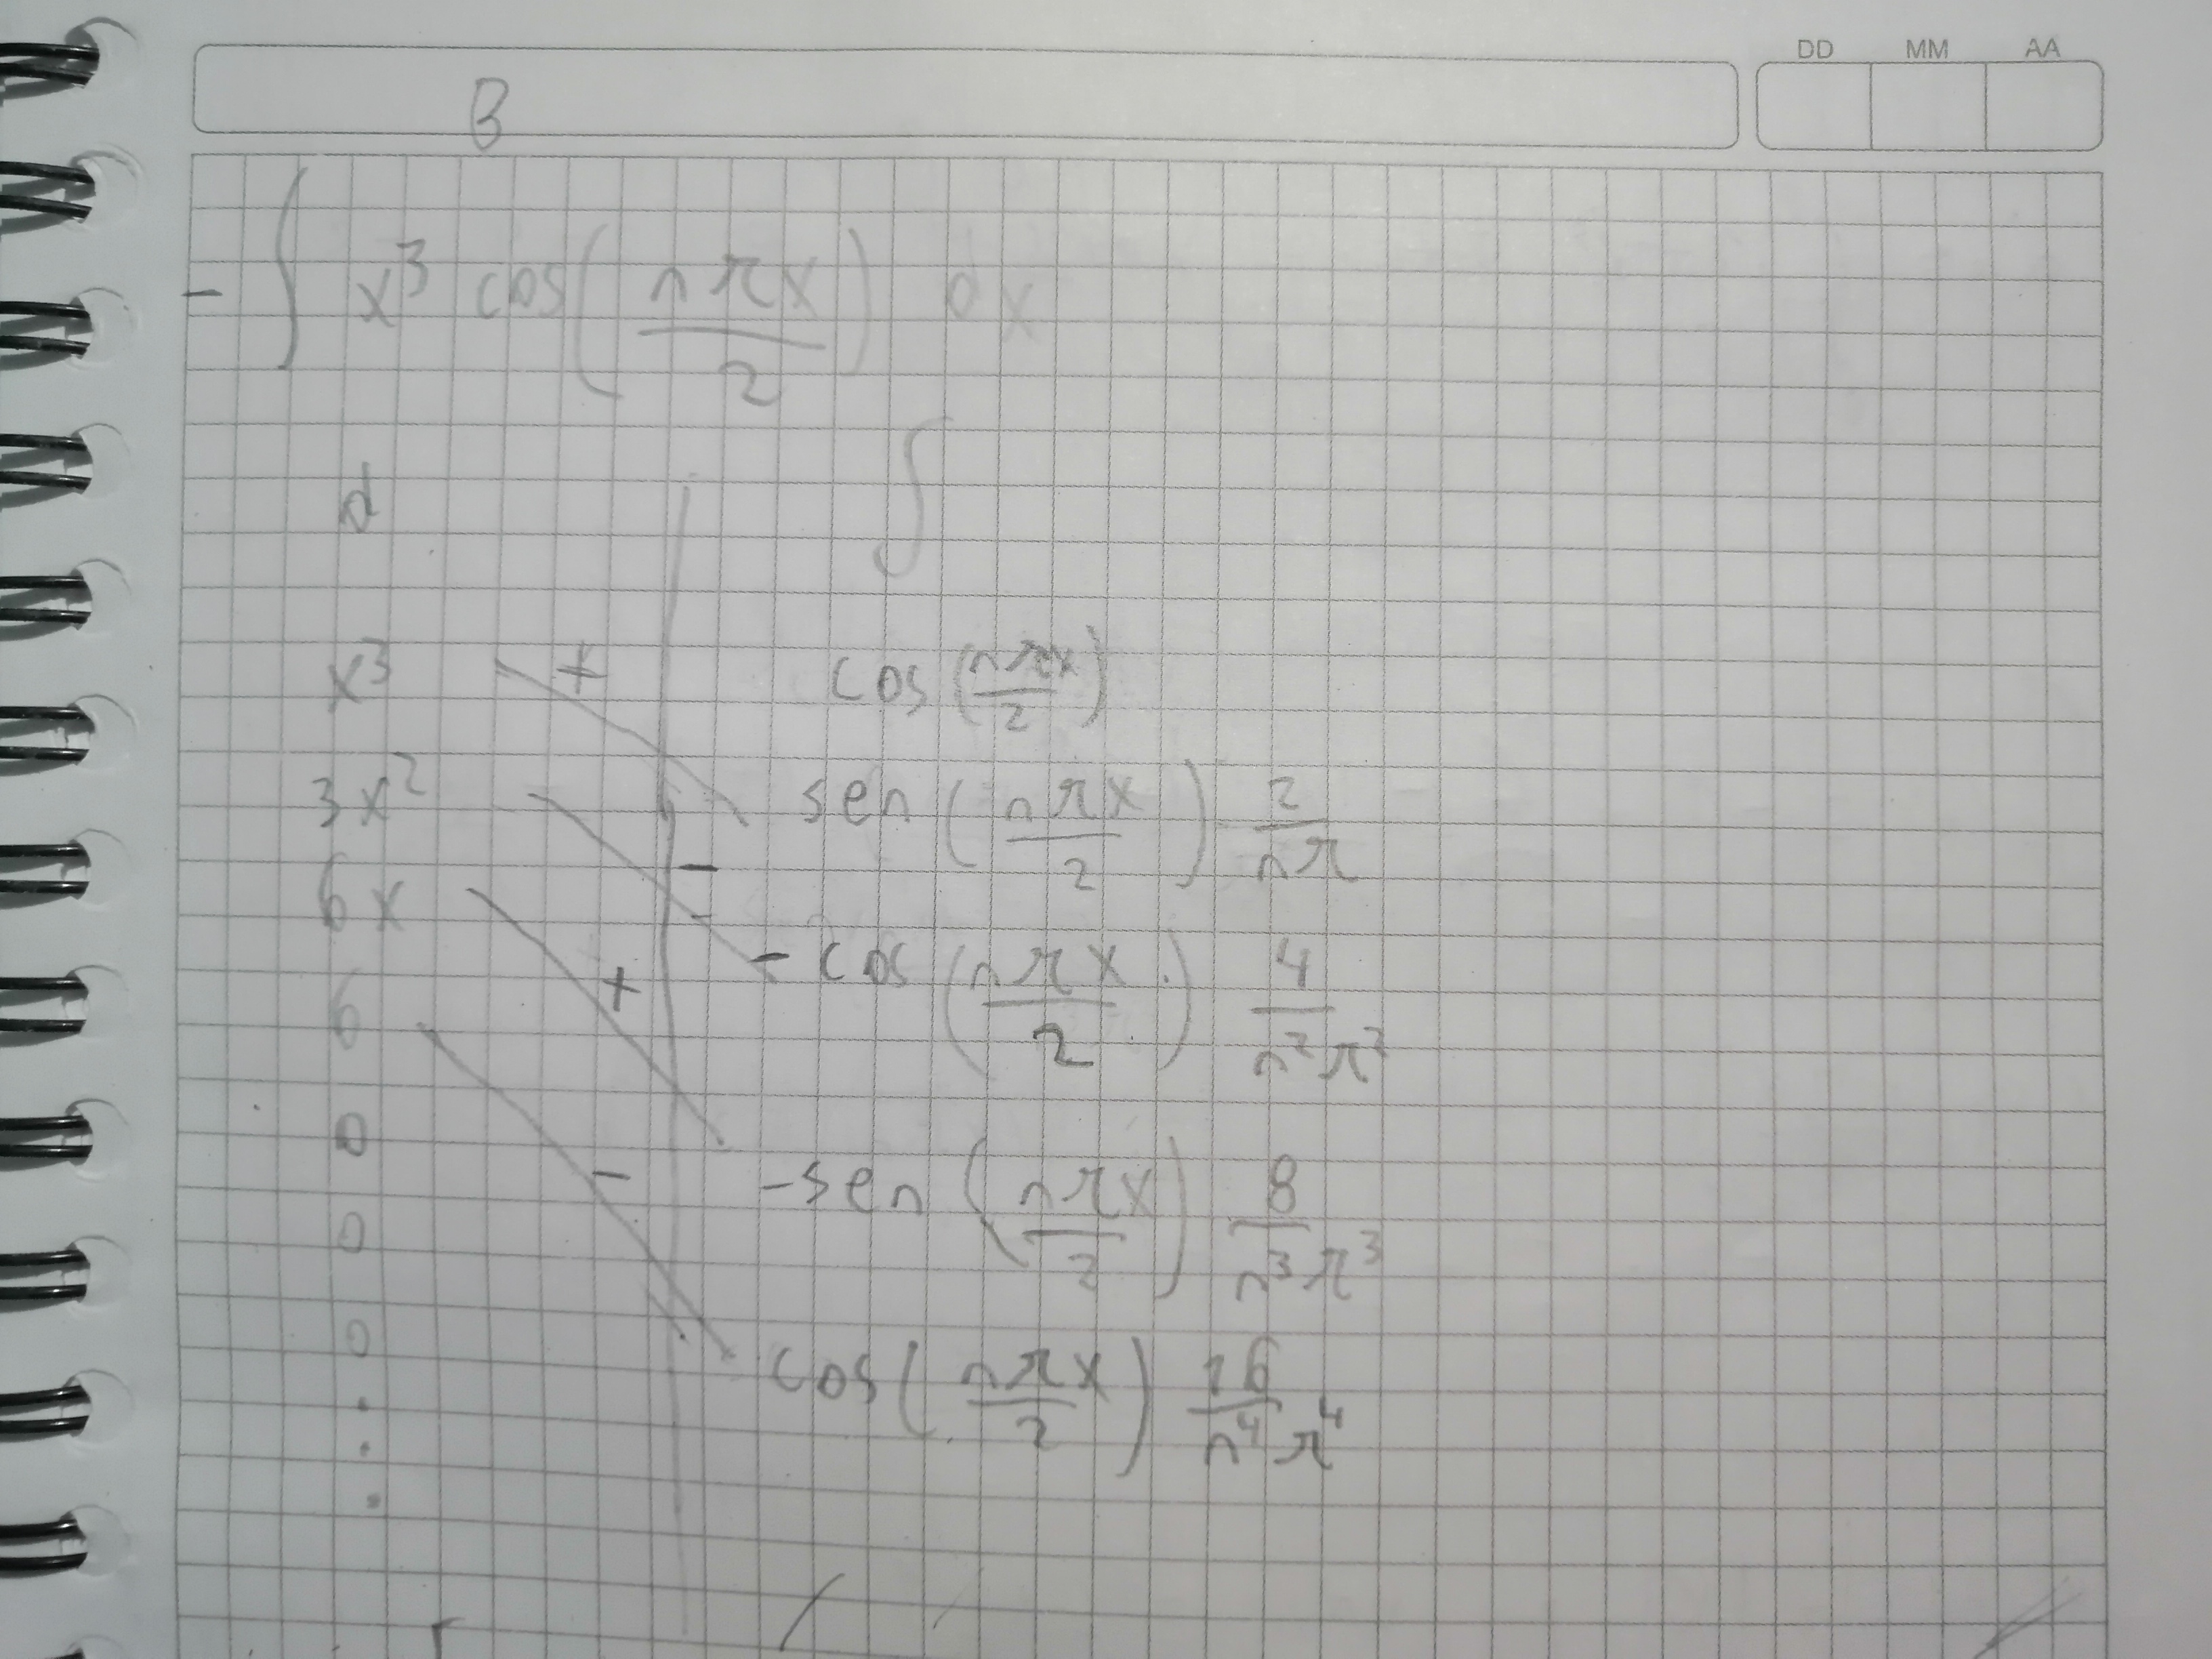 DD MM AA
B
- ∫ x³ cos(nπx/2) dx
d ∫
x³ + cos(nπx/2)
3x² - sen(nπx/2) 2/nπ
6x + - cos(nπx/2) 4/n²π²
6 -
0 -sen(nπx/2) 8/n³π³
0
0 cos(nπx/2) 16/n⁴π⁴
.
.
.